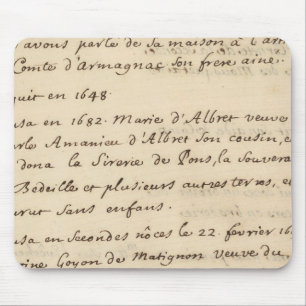 avons parlé de sa maison à l'arti
Comte d'Armagnac son frere ainé.
quit en 1648.
usa en 1682. Marie d'Albret veuve
arle Amanieu d'Albret son cousin, e
dona la Sirerie de Pons, la souvera
Bedeille et plusieurs autres terres, et
urut sans enfans.
usa en secondes nôces le 22. fevrier 16
rine Goyon de Matignon veuve du